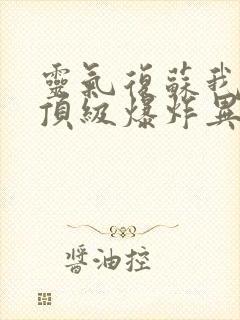 靈氣復蘇我
頂級爆炸異
醬油控